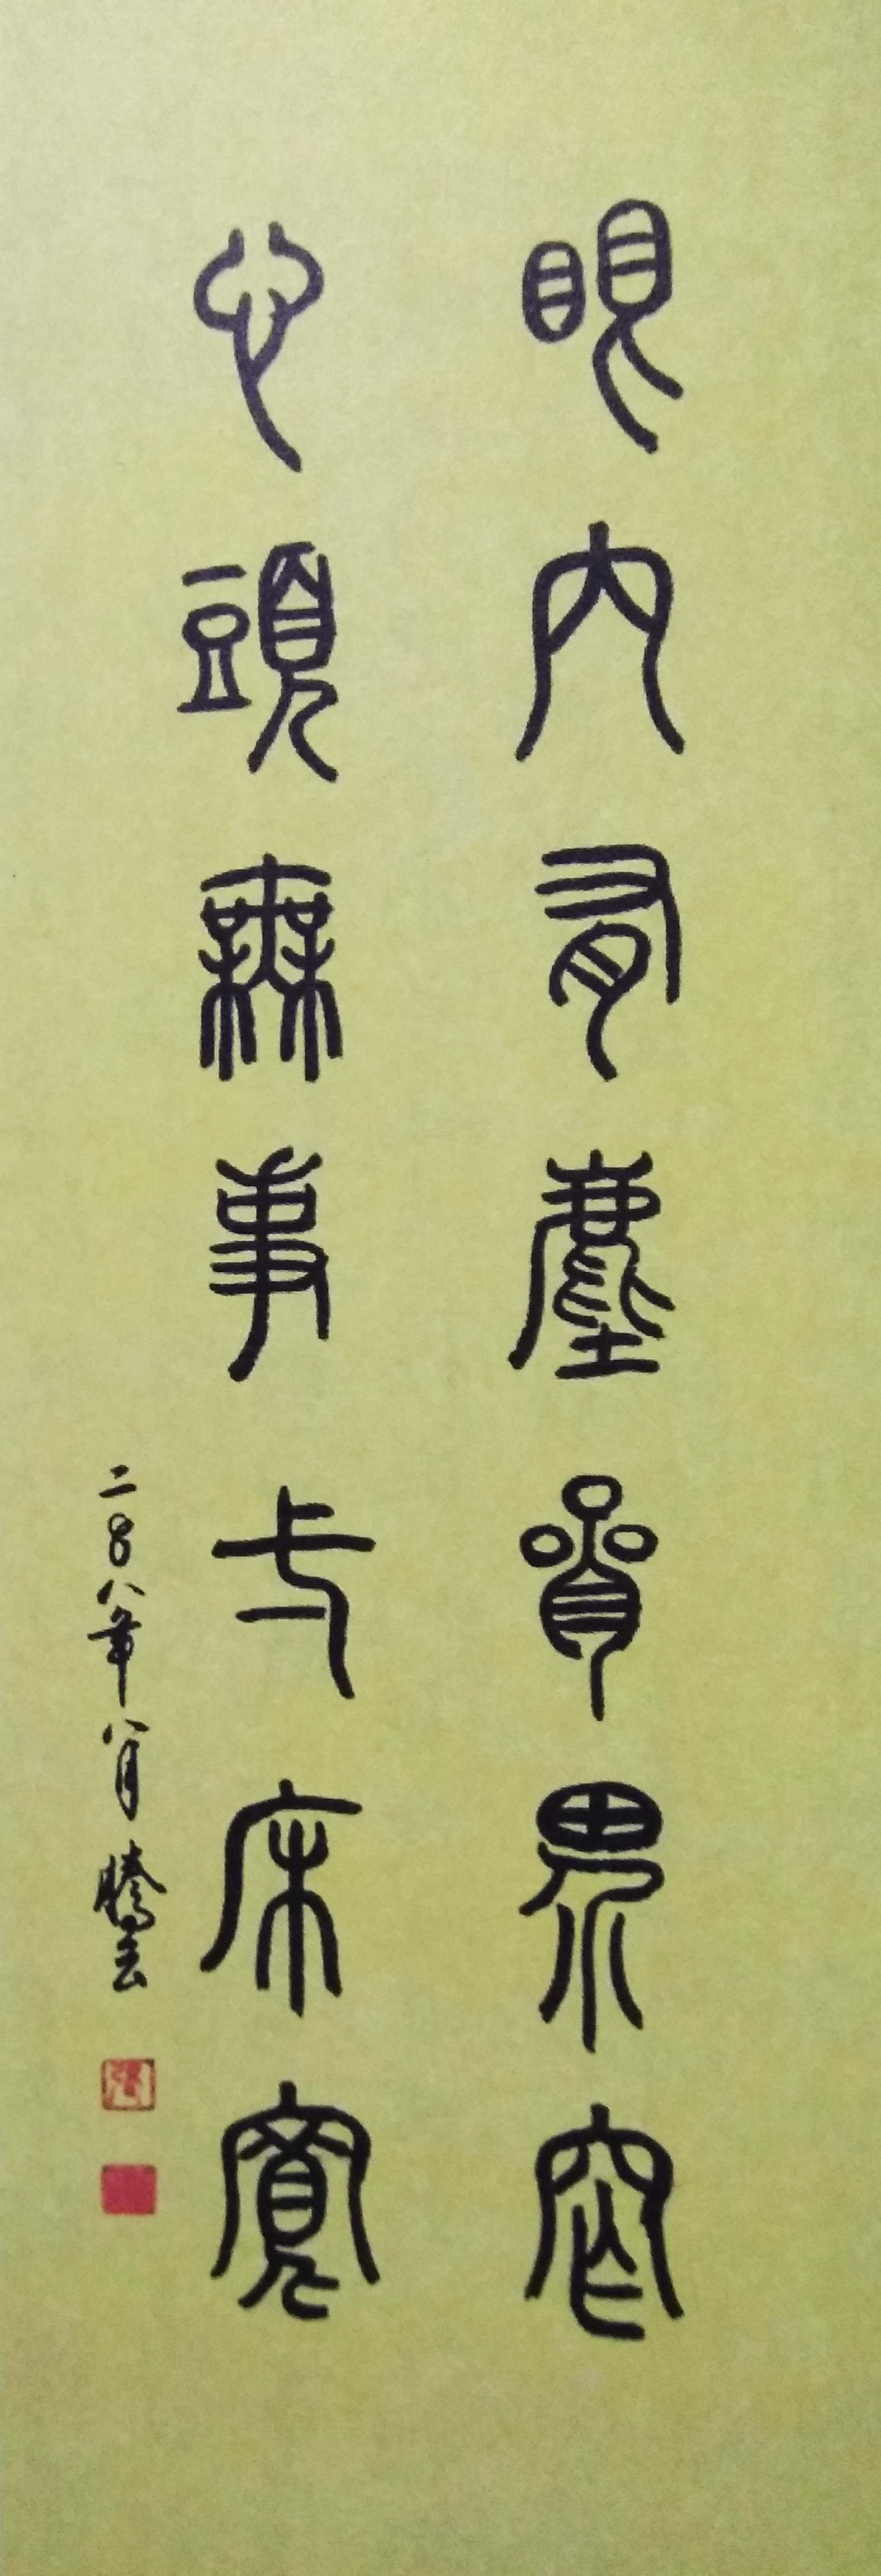 眼内有塵三界窄
心頭無事一床寬
二〇〇八年八月騰雲